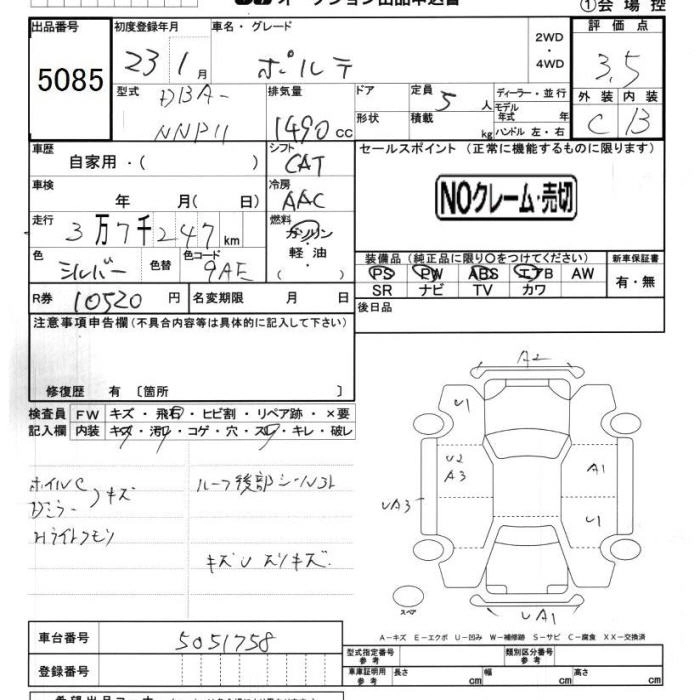 オークション出品申込書 ①会場控
出品番号 初度登録年月 車名・グレード 2WD ・ 4WD 評価点
5085 23 1月 ポルテ 3.5
型式 DBA- NNP11 排気量 1490 cc ドア 定員 5 人 ディーラー・並行 外装 内装
形状 積載 kg モデル年式 年 ハンドル 左・右 C B
車歴 自家用・( ) シフト CAT セールスポイント (正常に機能するものに限ります)
車検 年 月( 日) 冷房 AAC NOクレーム・売切
走行 3万7千247km 燃料 ガソリン・軽油 ( )
色 シルバー 色替 色コード 9AE 装備品 (純正品に限り〇をつけてください) 新車保証書
PS PW ABS エアB AW 有・無
SR ナビ TV カワ
R券 10520円 名変期限 月 日 後日品
注意事項申告欄(不具合内容等は具体的に記入して下さい)
修復歴 有 〔箇所 〕
検査員 記入欄 FW キズ・飛石・ヒビ割・リペア跡・×要
内装 キズ・汚れ・コゲ・穴・スレ・キレ・破レ
ホイルC
Dミラー キズ
ルーフ後部シール
Hライトクモリ
キズU スリキズ
A2
U1
U2
A3
A1
UA3
U1
UA1
スペア
A-キズ E-エクボ U-凹み W-補修跡 S-サビ C-腐食 XX-交換済
車台番号 5051758
型式指定番号 参考 類別区分番号 参考
登録番号 車庫証明用 参考 長さ cm 幅 cm 高さ cm
希望出品コーナー